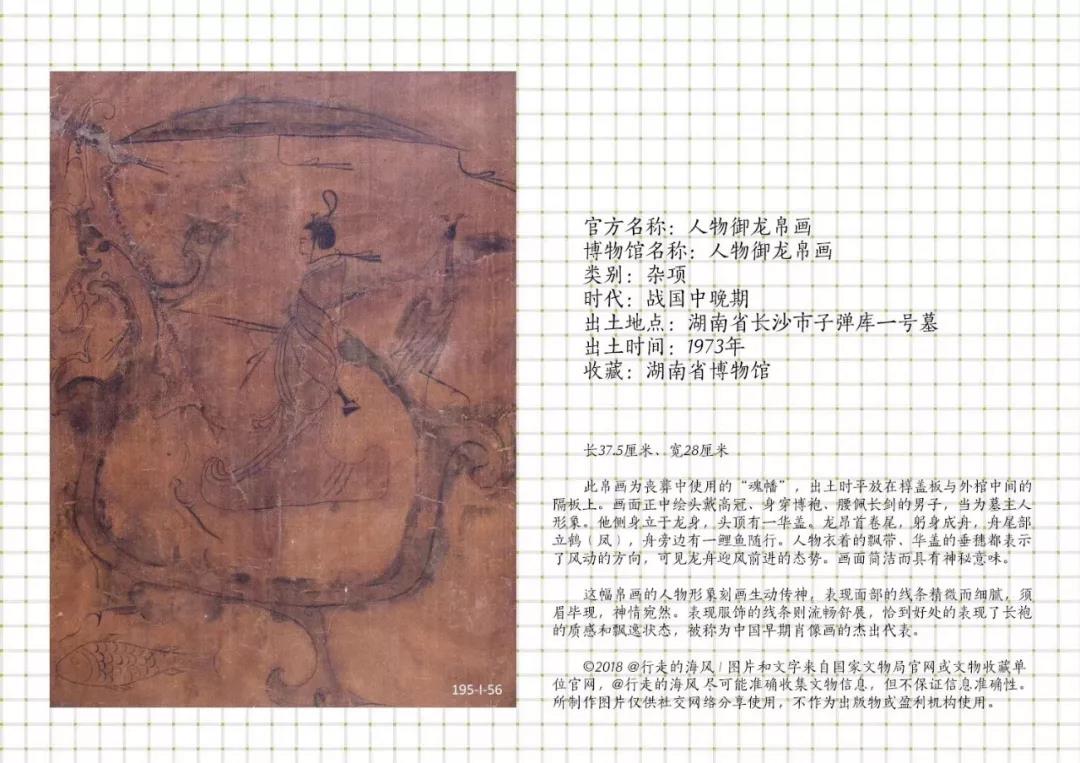 官方名称：人物御龙帛画
博物馆名称：人物御龙帛画
类别：杂项
时代：战国中晚期
出土地点：湖南省长沙市子弹库一号墓
出土时间：1973年
收藏：湖南省博物馆
长37.5厘米、宽28厘米
此帛画为丧葬中使用的“魂幡”，出土时平放在椁盖板与外棺中间的
隔板上。画面正中绘头戴高冠、身穿博袍、腰佩长剑的男子，当为墓主人
形象。他侧身立于龙身，头顶有一华盖。龙昂首卷尾，躬身成舟，舟尾部
立鹤（凤），舟旁边有一鲤鱼随行。人物衣着的飘带、华盖的垂穗都表示
了风动的方向，可见龙舟迎风前进的态势。画面简洁而具有神秘意味。
这幅帛画的人物形象刻画生动传神，表现面部的线条精微而细腻，须
眉毕现，神情宛然。表现服饰的线条则流畅舒展，恰到好处的表现了长袍
的质感和飘逸状态，被称为中国早期肖像画的杰出代表。
©2018 @行走的海风 | 图片和文字来自国家文物局官网或文物收藏单
位官网，@行走的海风 尽可能准确收集文物信息，但不保证信息准确性。
所制作图片仅供社交网络分享使用，不作为出版物或盈利机构使用。
195-I-56